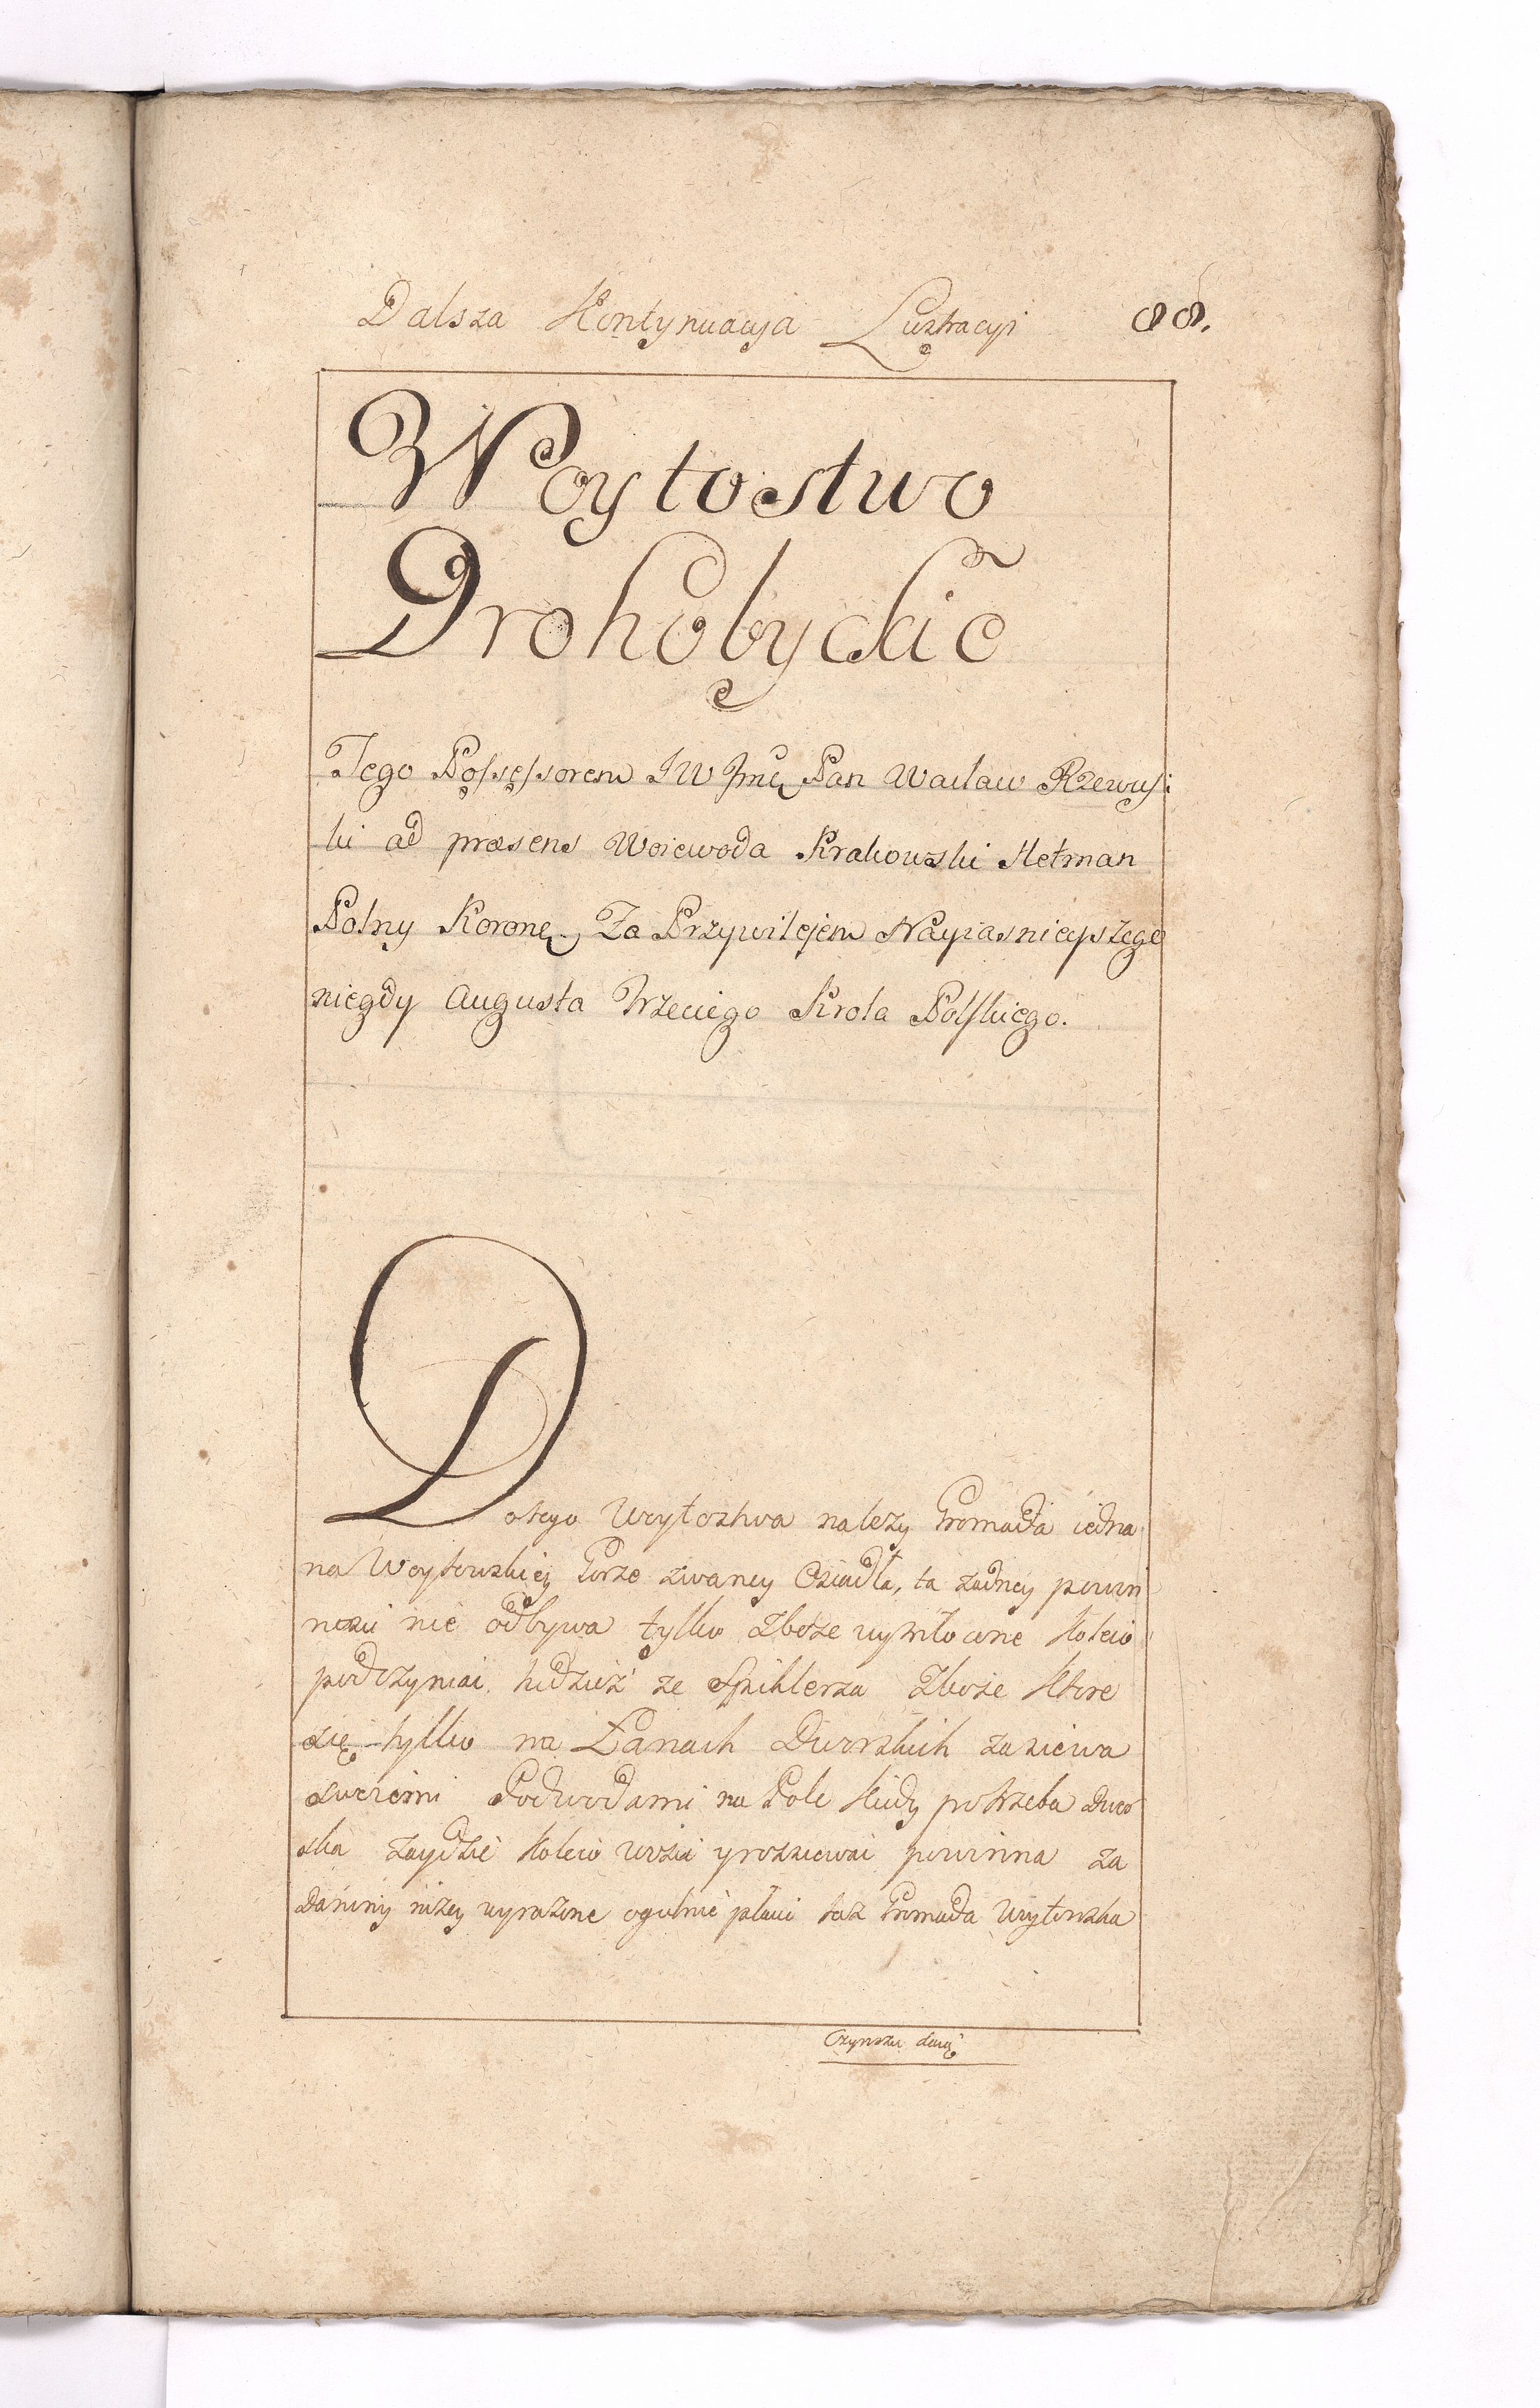 Dalsza Kontynuacyja Lustracyi 88.
Woytostwo
Drohobyckie
Tego Possessorem JW Jmc Pan Wacław Rzewus:
ki ad præsens Woiewoda Krakowski Hetman
Polny Koronẽ. Za Przywilejem Nayiasnieyszego
niegdy Augusta Trzeciego Krola Polskiego.
Do tego Woytostwa nalezy Gromada iedna
na Woytowskiey Gorze zwaney Osiadła, ta zadney powin
nosci nie odbywa tylko zboże wymłocone koleio
podczyniac tudziesz ze Spihlerza zboże ktore
się tylko na Łanach Dworskich zasiewa
sweiemi Podwodami na Pole kiedy potrzeba Dwor
ska zaydzie koleio wozic y rozsiewac powinna za
daniny nizey wyrazone ogulnie płaci taż Gromada Woytowska
Czynszu